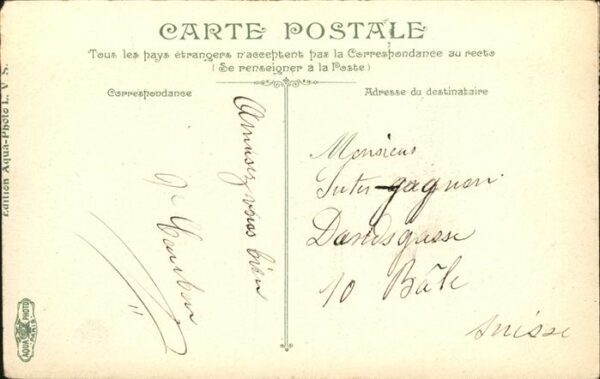 CARTE POSTALE
Tous les pays étrangers n'acceptent pas la Correspondance au recto
(Se renseigner à la Poste)
Correspondance
Adresse du destinataire
Amusez vous bien
Monsieur
Suter-gagnon
10 Bâle
Suisse
Edition Aqua-Photo L. V. S.
AQUA PHOTO
PARIS